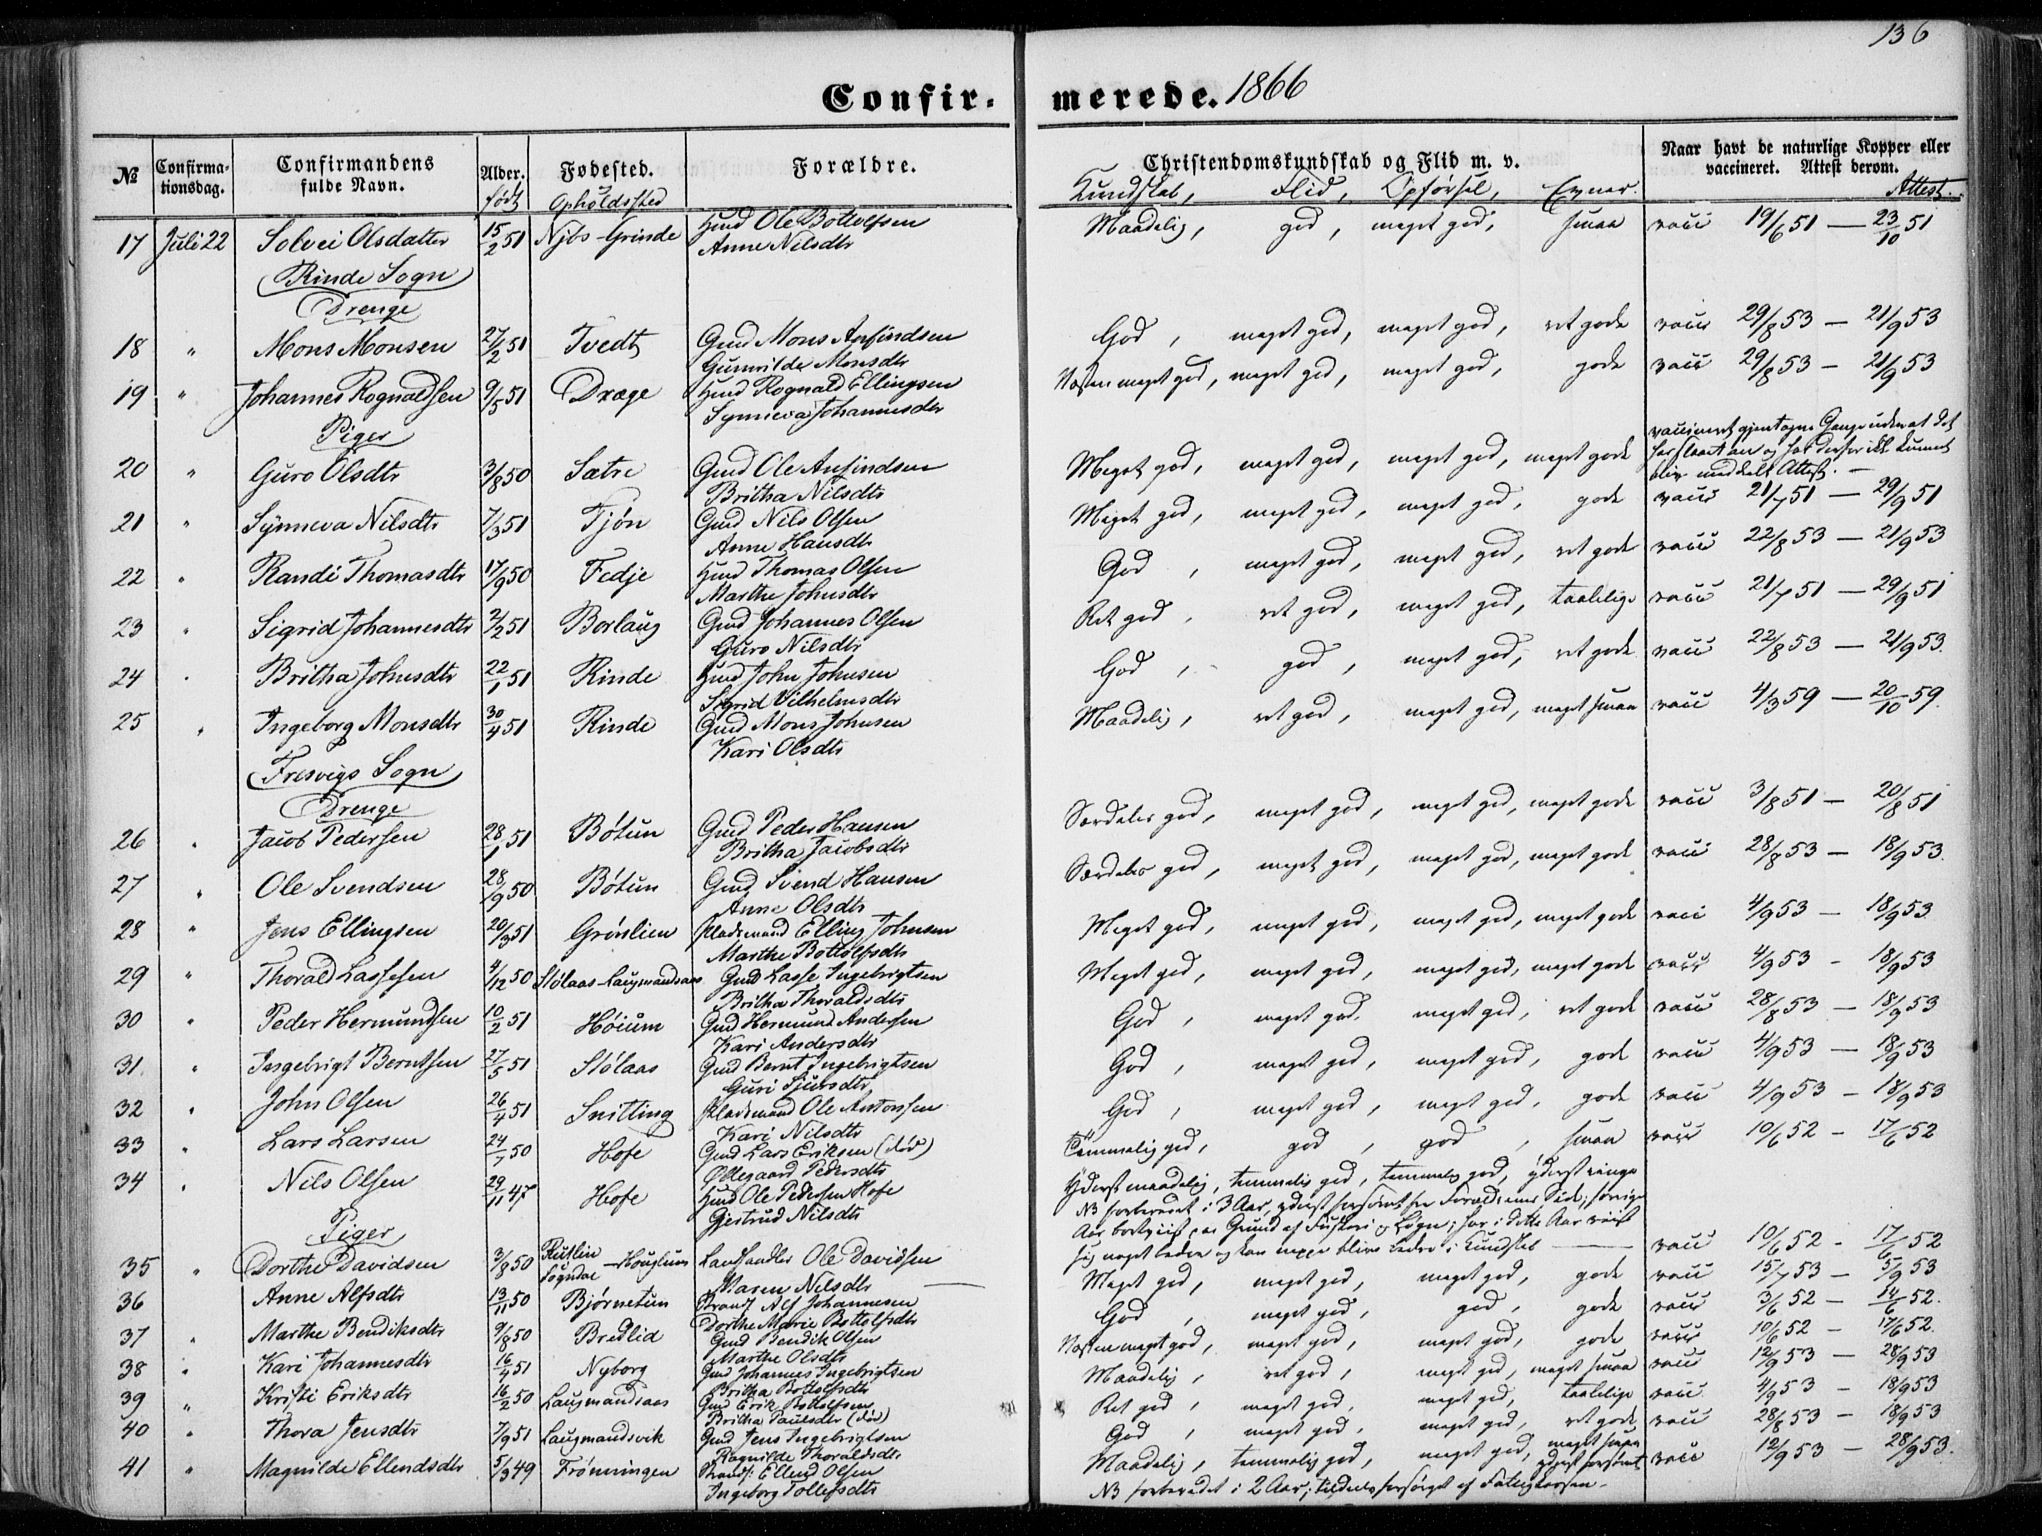 136
Confirmerede. 1866
№ Confirmationsdag. Confirmandens fulde Navn. Alder. født Fødested. Opholdssted Forældre. Christendomskundskab og Flid m. v. Kundskab, Flid, Opførsel, Evner. Naar havt de naturlige Kopper eller vaccineret. Attest derom. Attest.
17 Juli 22 Solvei Olsdatter 15/2 51 Njøs-Grinde Hmd Ole Bottolfsen Maadelig, god, meget god, smaa vacc 19/6 51 — 23/10 51
Anne Nilsdtr
Rinde Sogn
Drenge
18 " Mons Monsen 27/2 51 Tvedt Gmd Mons Anfindsen God, meget god, meget god, ret gode vacc 29/8 53 — 21/9 53
Gunnilde Monsdtr
19 " Johannes Rognaldsen 9/5 51 Dræge Hmd Rognald Ellingsen Næsten meget god, meget god, meget god, gode vacc 29/8 53 — 21/9 53
Synneva Johannesdtr
Piger
vaccineret gjentagne Gange uden at det
har slaaet an og har derfor ikke kunnet
blive meddelt Attest. —
20 " Guro Olsdtr 3/8 50 Sætre Gmd Ole Anfindsen Meget god, meget god, meget god, meget gode
Britha Nilsdtr
21 " Synneva Nilsdtr 7/3 51 Tjøn Gmd Nils Olsen Meget god, meget god, meget god, gode vacc 21/7 51 — 29/9 51
Anne Hansdtr
22 " Randi Thomasdtr 17/9 50 Fedje Hmd Thomas Olsen God, meget god, meget god, ret gode vacc 22/8 53 — 21/9 53
Marthe Johnsdtr
23 " Sigrid Johannesdtr 2/2 51 Borlaug Gmd Johannes Olsen Ret god, ret god, meget god, taalelige vacc 21/7 51 — 29/9 51
Guro Nilsdtr
24 " Britha Johnsdtr 22/1 51 Rinde Hmd John Johnsen God, god, meget god, ret gode vacc 22/8 53 — 21/9 53.
Sigrid Vilhelmsdtr
25 " Ingeborg Monsdtr 30/4 51 Rinde Gmd Mons Johnsen Maadelig, ret god, meget god, meget smaa vacc 4/3 59 — 20/10 59.
Kari Olsdtr
Fresvigs Sogn
Drenge
26 " Jacob Pedersen 28/1 51 Bøtun Gmd Peder Hansen Særdeles god, meget god, meget god, meget gode vacc 3/8 51 — 20/8 51
Britha Jacobsdtr
27 " Ole Svendsen 28/9 50 Bøtun Gmd Svend Hansen Særdeles god, meget god, meget god, meget gode vacc 28/8 53 — 18/9 53.
Anne Olsdtr
28 " Jens Ellingsen 20/3 51 Grønlien Pladsmand Elling Johnsen Meget god, meget god, meget god, meget gode vacc 4/9 53 — 18/9 53
Marthe Bottolfsdtr
29 " Thorald Lassesen 4/12 50 Stølaas-Laugmandsaas Gmd Lasse Ingebrigtsen Meget god, meget god, meget god, meget gode vacc 4/9 53 - 18/9 53
Britha Thoraldsdtr
30 " Peder Hermundsen 10/2 51 Høium Gmd Hermund Andersen God, meget god, meget god, ret gode vacc 28/8 53 — 18/9 53
Kari Andersdtr
31. " Ingebrigt Berntsen 27/5 51 Stølaas Gmd Bernt Ingebrigtsen God, meget god, meget god, gode vacc 4/9 53 — 18/9 53
Guri Sjursdtr
32 " John Olsen 26/4 51 Snilling Pladsmand Ole Antonsen God, meget god, meget god, gode vacc 4/9 53 — 18/9 53
Kari Nilsdtr
33 " Lars Larsen 24/7 50 Hofe Gmd Lars Eriksen (død) Temmelig god, god, god, smaa vacc 10/6 52 - 17/6 52
Oddegaard Pedersdtr
34 " Nils Olsen 29/11 47 Hofe Hmd Ole Pedersen Hofe Yderst maadelig, temmelig god, temmelig god, yderst ringe
Gjertrud Nilsdtr NB forberedet i 3 Aar, yderst forsømt fra Forældrenes Side; forrige
Aar bortviist paa Grund af Fuskeri og Løgn; har i dette Aar viist
sig noget bedre og kan neppe blive bedre i Kundskab — vacc 10/6 52 - 17/6 52
Piger
35 " Dorthe Davidsen 3/8 50 Rutlin Sogndal — Houglum Landhandler Ole Davidsen Meget god, meget god, meget god, gode vacc 15/7 53 — 5/9 53
Maren Nilsdtr
36 Anne Alfsdtr 13/11 50 Bjørnetun Strands. Alf Johannesen God, meget god, god, gode vacc 3/6 52 — 14/6 52.
Dorthe Marie Bottolfsdtr
37 " Marthe Bendiksdtr 9/8 50 Bredlid Gmd Bendik Olsen Næsten meget god, meget god, meget god, gode vacc 10/6 52 - 17/6 52.
Marthe Olsdtr
38 " Kari Johannesdtr 16/4 51 Nyborg Gmd Johannes Ingebrigtsen Maadelig, ret god, meget god, meget smaa vacc 12/9 53 — 28/9 53
Britha Bottolfsdtr
39 " Kristi Eriksdtr 16/2 50 Laugmandsaas Gmd Erik Bottolfsen Ret god, meget god, meget god, taalelige vacc 4/9 53 - 18/9 53
Britha Paulsdtr (død)
40 " Thora Jensdtr 7/9 51 Laugmandsvik Gmd Jens Ingebrigtsen God, meget god, meget god, ret gode vacc 28/8 53 — 18/9 53
Ragnilde Thoraldsdtr
41 " Magnilde Ellendsdtr 5/3 49 Frønningen Strands. Ellend Olsen Maadelig, temmelig god, meget god, meget smaa vacc 12/9 53 — 28/9 53.
Ingeborg Tollefsdtr yderst forsømt
NB forberedet i 2 Aar; tildeels forsørget af Fattigkassen.